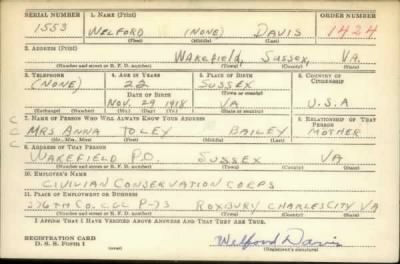 SERIAL NUMBER 1. NAME (Print) ORDER NUMBER
1553 WELFORD (NONE) DAVIS 1424
(First) (Middle) (Last)
2. ADDRESS (Print)
WAKEFIELD, SUSSEX, VA.
(Number and street or R. F. D. number) (Town) (County) (State)
3. TELEPHONE 4. AGE IN YEARS 5. PLACE OF BIRTH 6. COUNTRY OF CITIZENSHIP
(NONE) 22 SUSSEX
DATE OF BIRTH (Town or county)
NOV. 29 1918 VA U.S.A
(Exchange) (Number) (Mo.) (Day) (Yr.) (State or country)
7. NAME OF PERSON WHO WILL ALWAYS KNOW YOUR ADDRESS 8. RELATIONSHIP OF THAT PERSON
MRS ANNA BAILEY MOTHER
(Mr., Mrs., Miss) (First) (Middle) (Last)
9. ADDRESS OF THAT PERSON
WAKEFIELD P.O. SUSSEX VA
(Number and street or R. F. D. number) (Town) (County) (State)
10. EMPLOYER'S NAME
CIVILIAN CONSERVATION CORPS
11. PLACE OF EMPLOYMENT OR BUSINESS
CO. CCC P-73 ROXBURY CHARLES CITY VA
(Number and street or R. F. D. number) (Town) (County) (State)
I AFFIRM THAT I HAVE VERIFIED ABOVE ANSWERS AND THAT THEY ARE TRUE.
REGISTRATION CARD
D. S. S. Form 1 Welford Davis
(Registrant's signature)